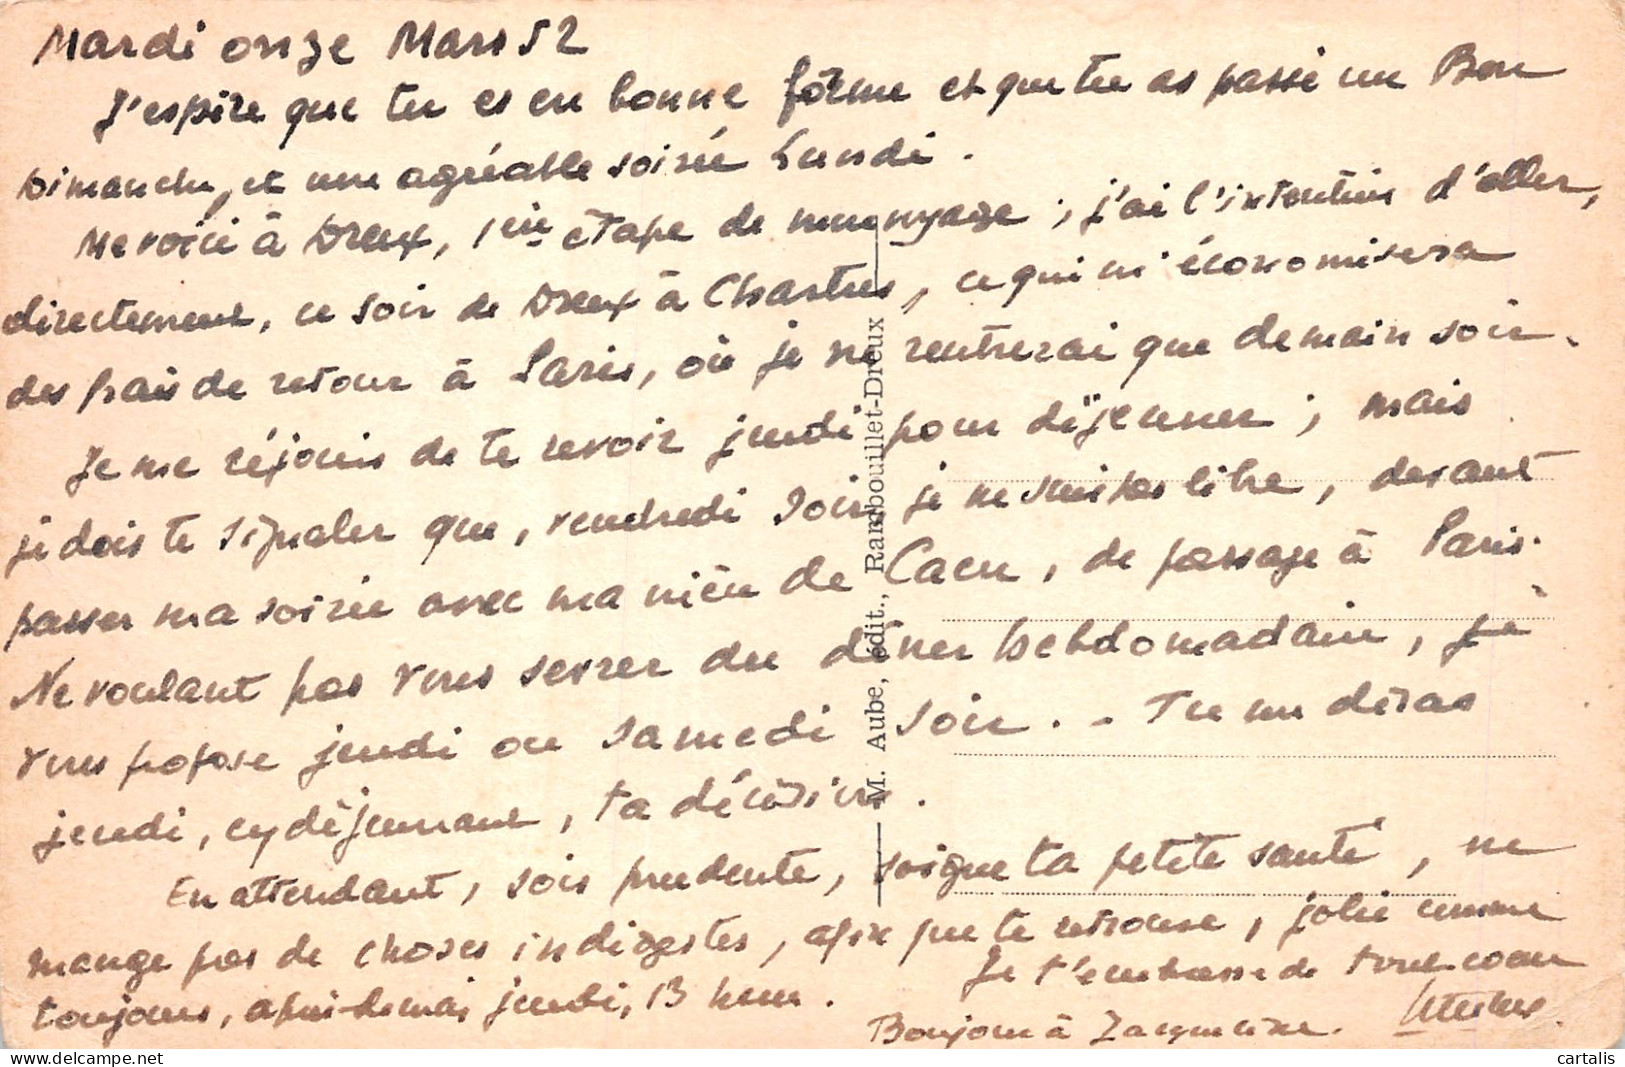 Mardi onze Mars 52
J'espère que tu es en bonne forme et que tu as passé un Bon
Dimanche, et une agréable soirée Lundi.
Me voici à Dreux, 1ère étape de mon voyage ; j'ai l'intention d'aller,
directement, ce soir de Dreux à Chartres, ce qui m'économisera
des frais de retour à Paris, où je ne rentrerai que demain soir.
Je me réjouis de te revoir jeudi pour déjeuner ; mais
je dois te signaler que, vendredi soir, je ne suis pas libre, devant
passer ma soirée avec ma nièce de Caen, de passage à Paris.
Ne voulant pas vous sevrer du dîner hebdomadaire, je
vous propose jeudi ou samedi soir. - Tu me diras
jeudi, en déjeunant, ta décision.
En attendant, sois prudente, soigne ta petite santé, ne
mange pas de choses indigestes, afin que je te retrouve, jolie comme
toujours, après-demain jeudi, 13 heures.
Je t'embrasse de tout coeur
Bonjour à Jacqueline.
M. Aube, édit., Rambouillet-Dreux
cartalis